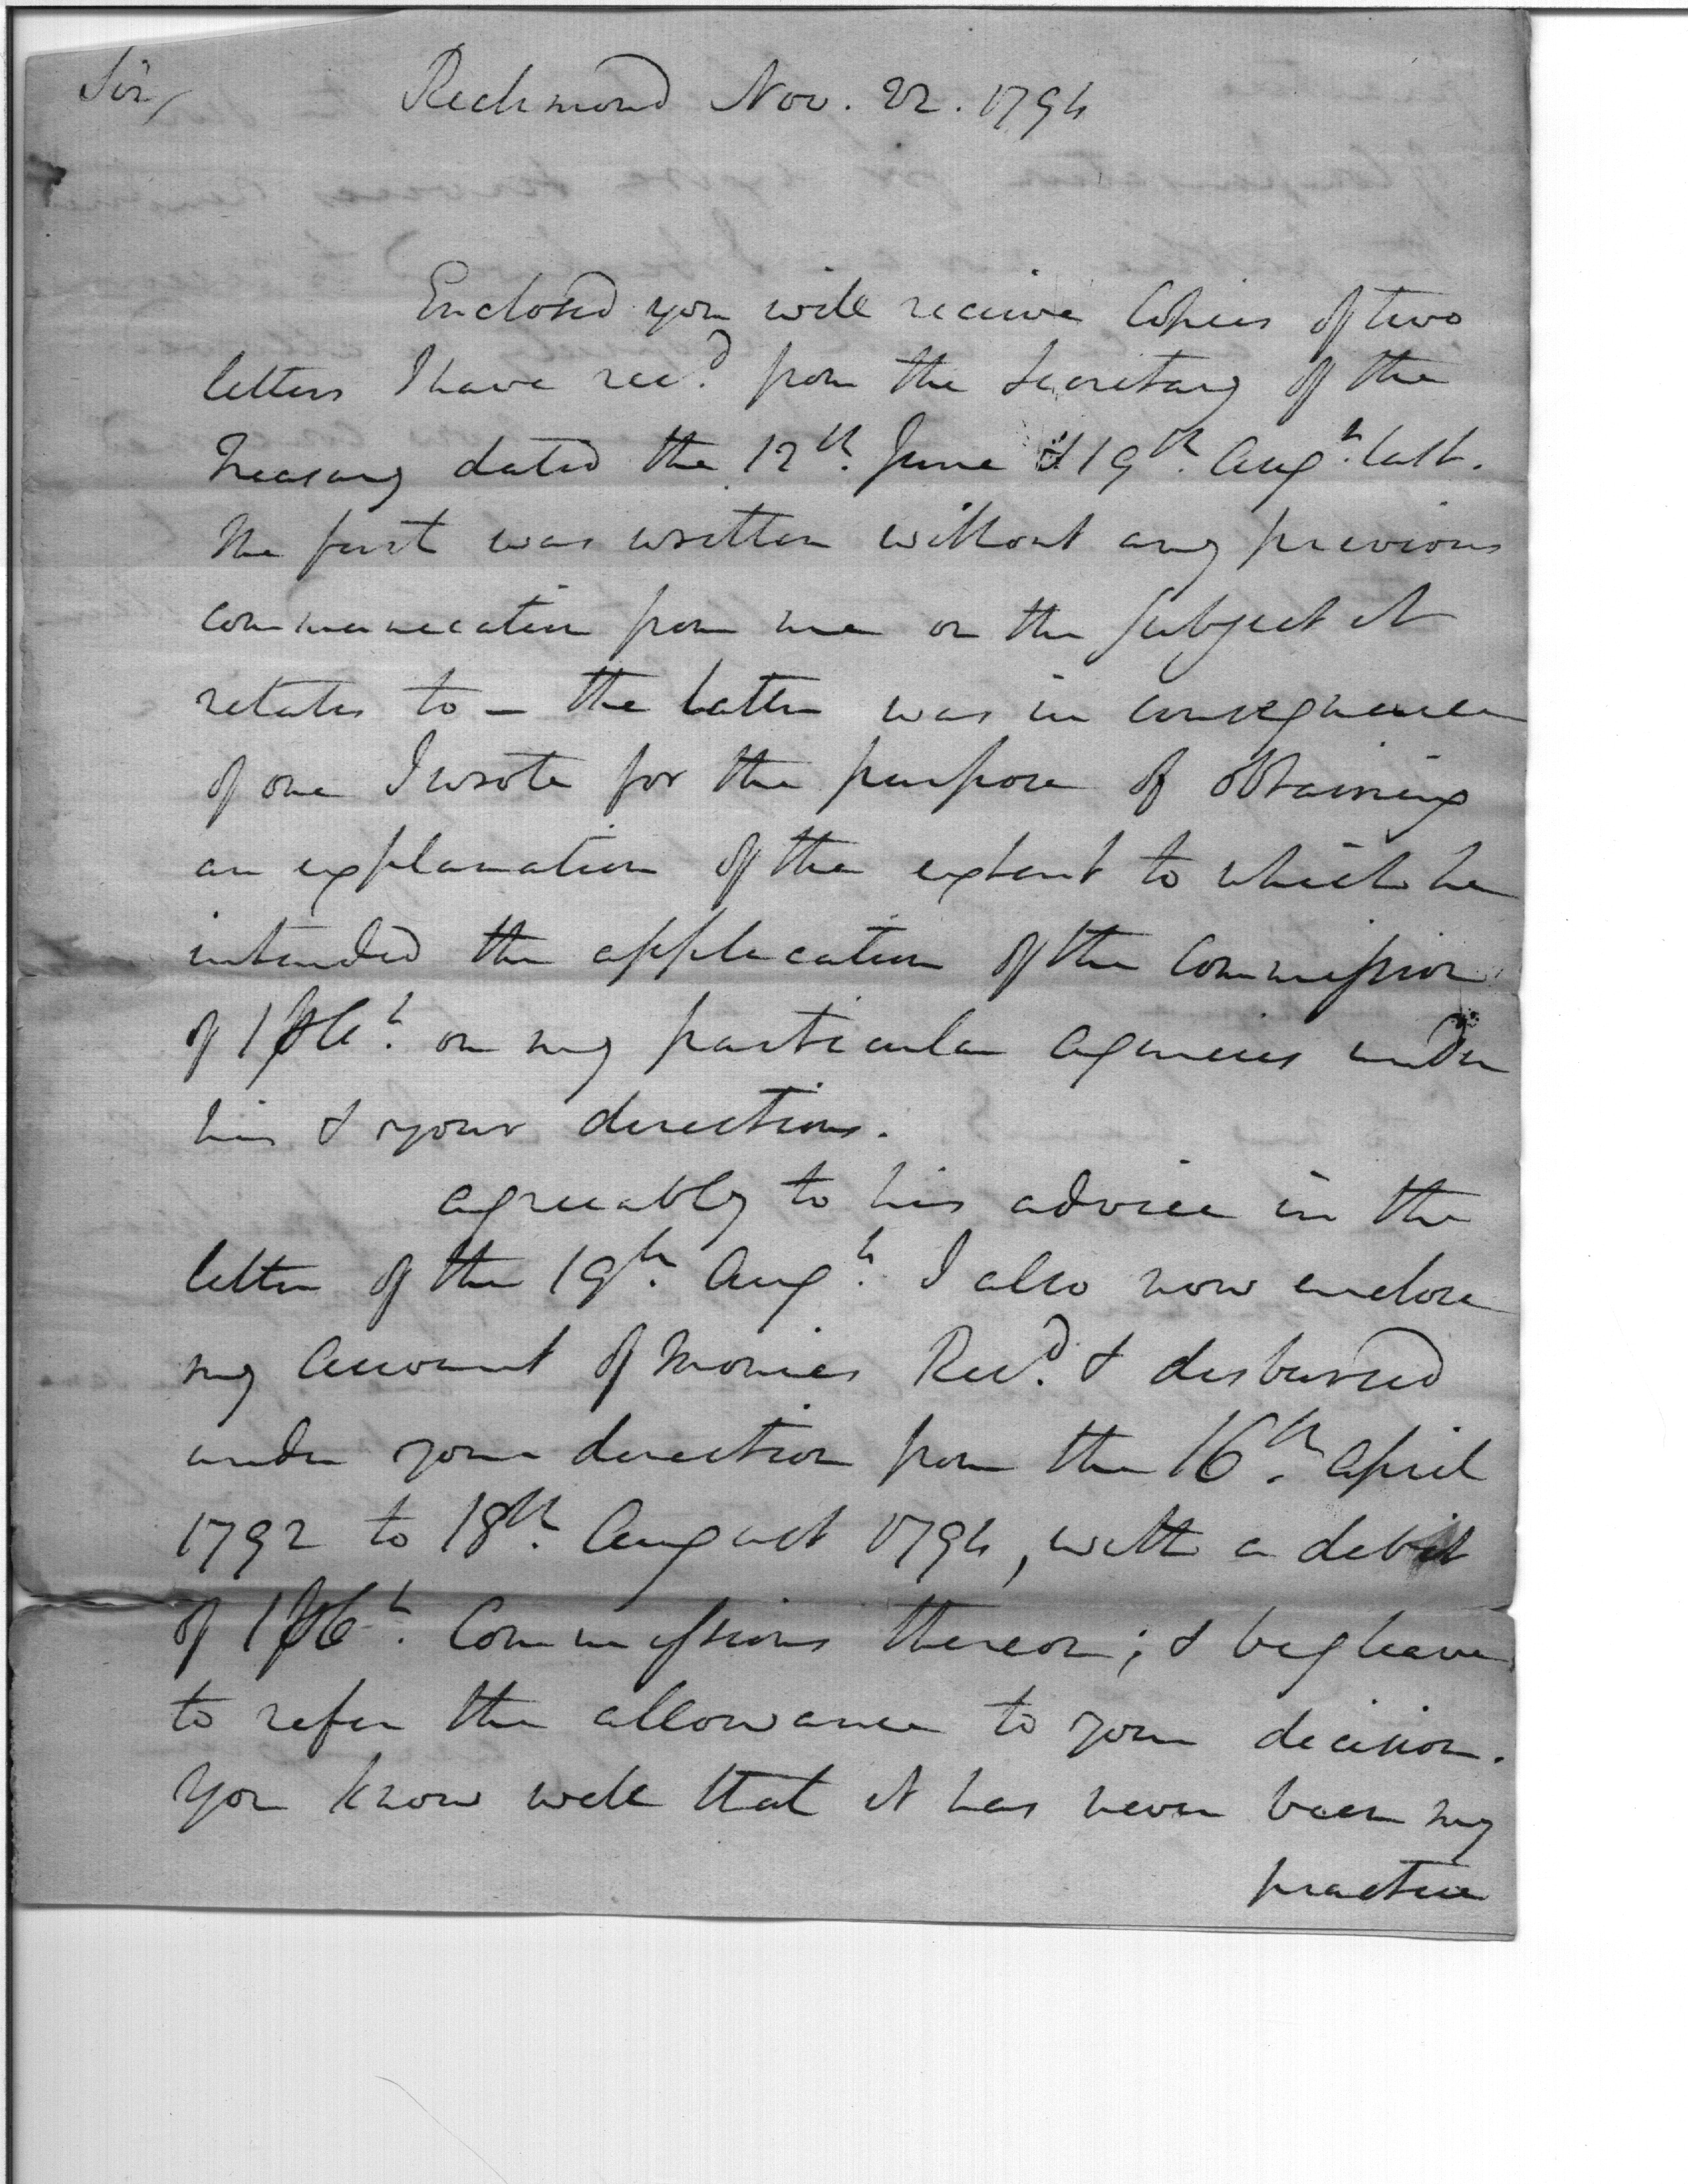 Sir, Richmond Nov. 22. 1794
Enclosed you will receive Copies of two
letters I have recd. from the Secretary of the
Treasury dated the 12th. June & 19th. Augt. last.
The first was written without any previous
communication from me on the subject it
relates to — the latter was in consequence
of one I wrote for the purpose of obtaining
an explanation of the extent to which he
intended the application of the Commission
of 1 ⅌Ct. on my particular agencies under
his & your directions.
Agreeably to his advice in the
letter of the 19th. Augt. I also now enclose
my Account of Monies Recd. & disbursed
under your direction from the 16th. April
1792 to 18th. August 1794, with a debit
of 1 ⅌Ct. Commissions thereon; & beg leave
to refer the allowance to your decision.
You know well that it has never been my
practice